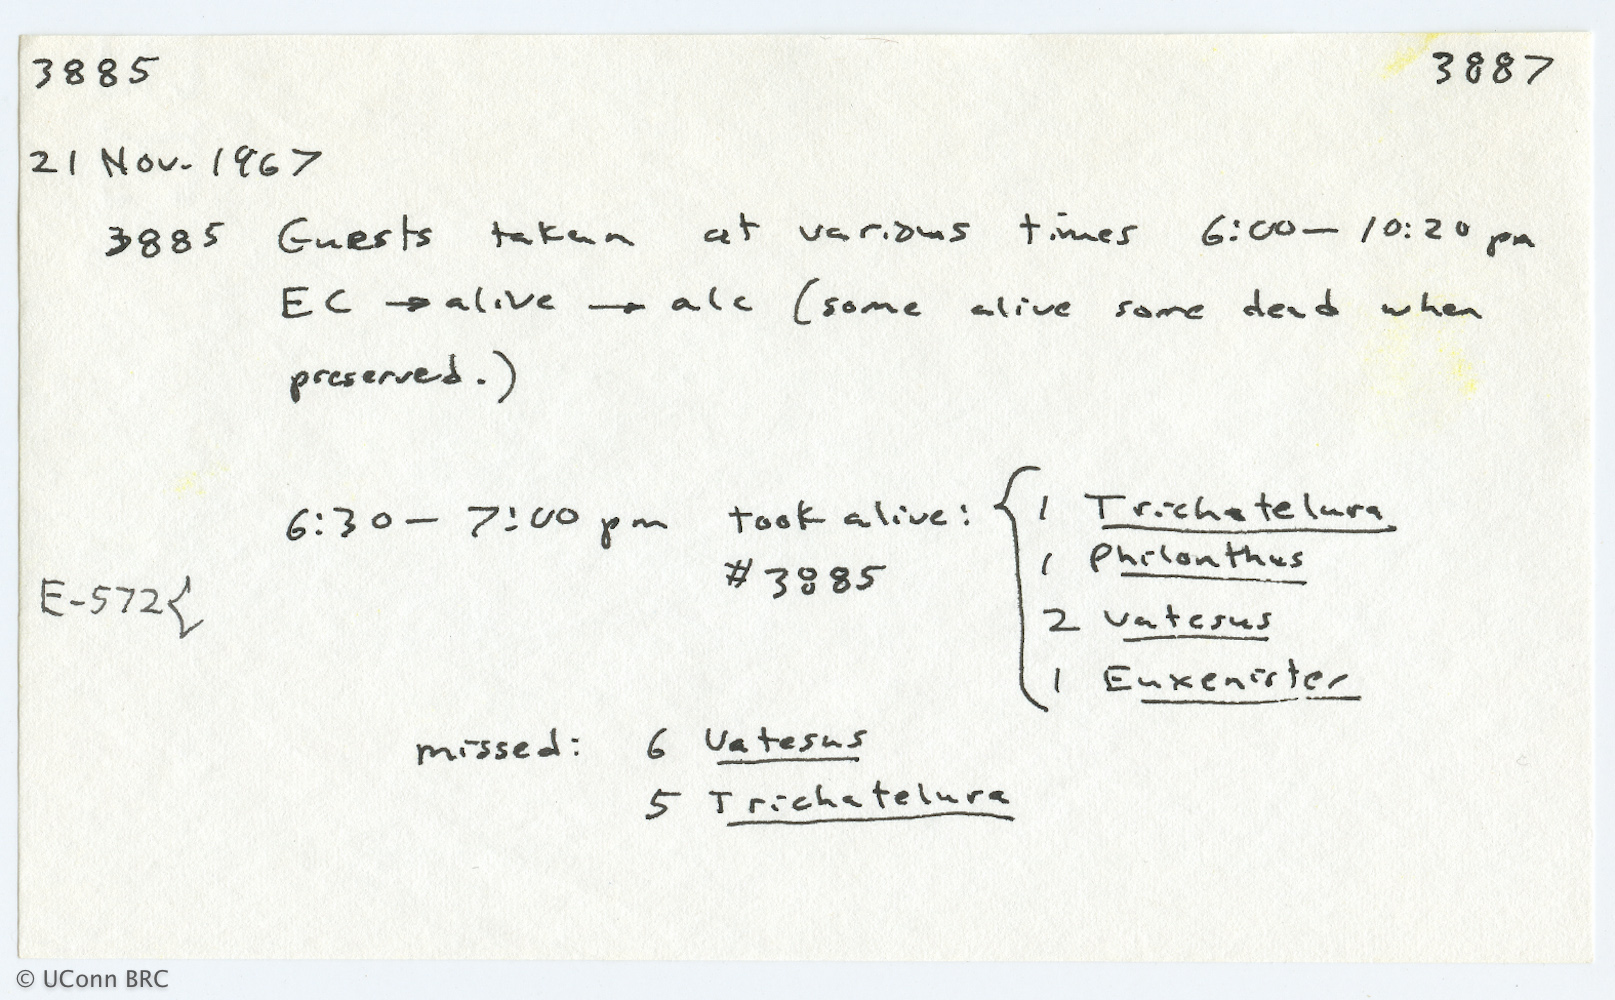 3885 3887
21 Nov. 1967
3885 Guests taken at various times 6:00 – 10:20 pm
EC → alive → alc (some alive some dead when
preserved.)
6:30 – 7:00 pm took alive: { 1 Trichatelura
#3885 1 Philonthus
E-572 { 2 Vatesus
1 Euxenister
missed: 6 Vatesus
5 Trichatelura
© UConn BRC